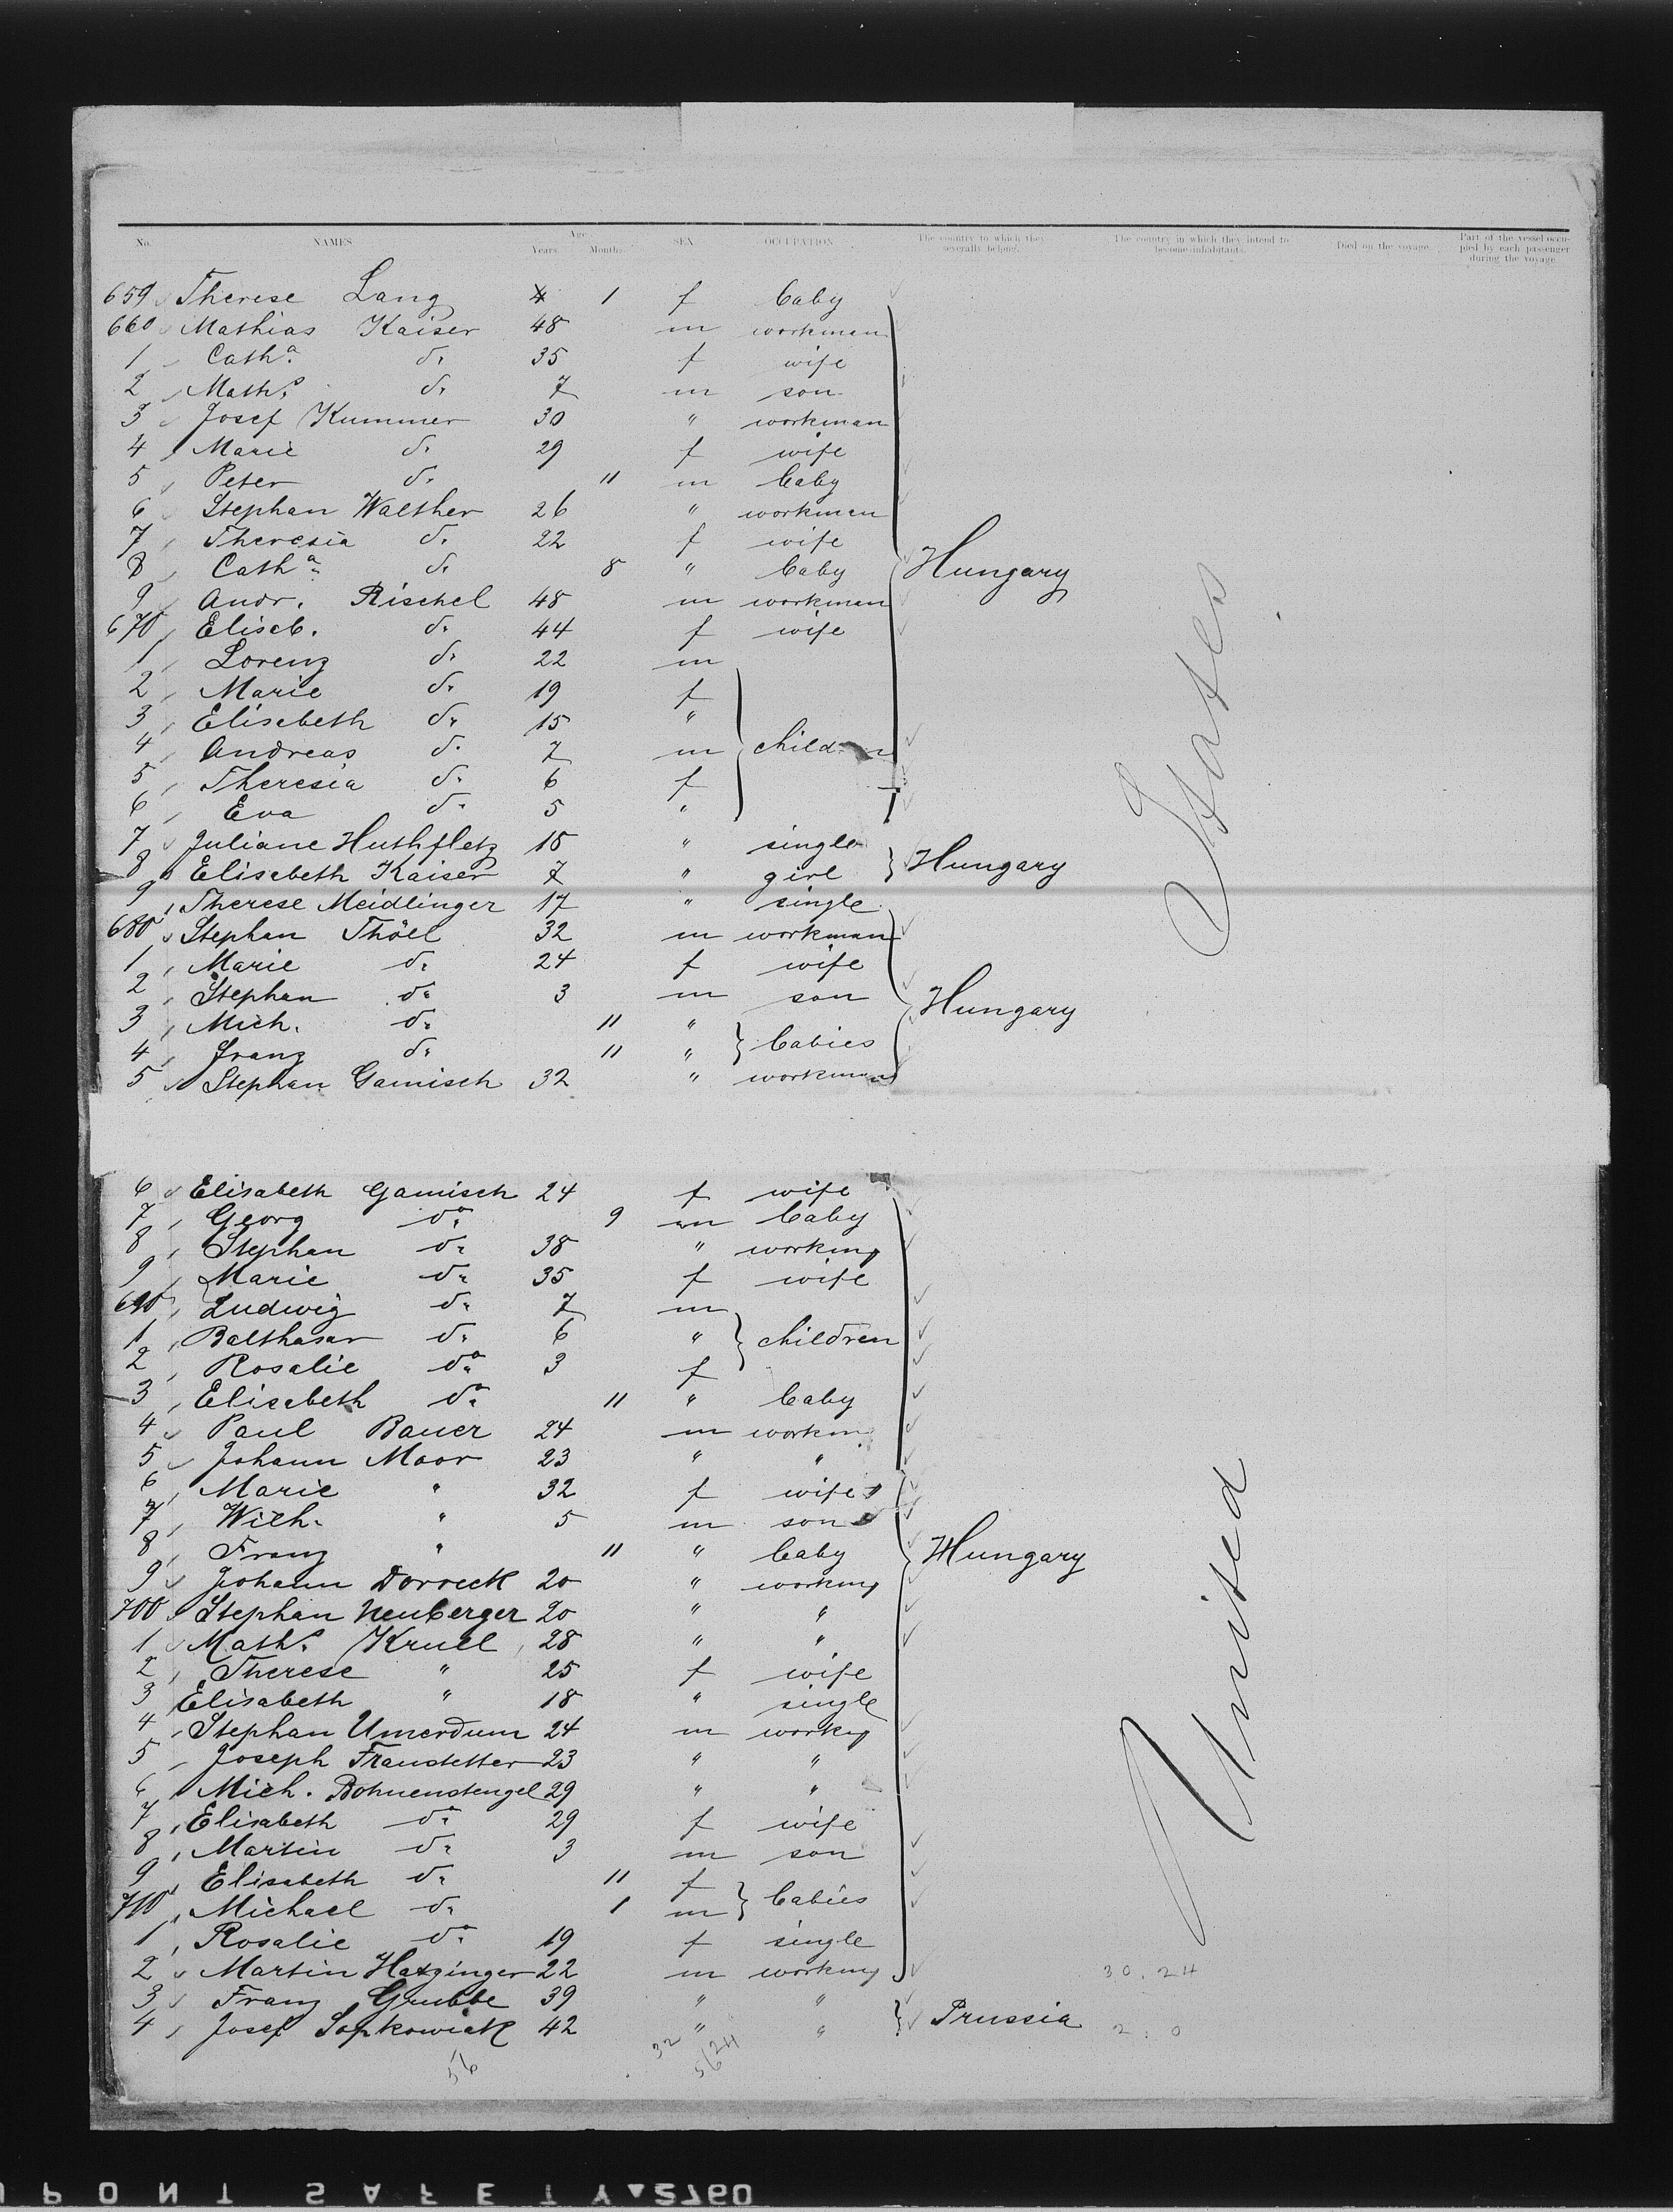 No. NAMES Age Years. Months. SEX OCCUPATION The country to which they severally belong. The country in which they intend to become inhabitants. Died on the voyage. Part of the vessel occupied by each passenger during the voyage
659 Therese Lang 1 f baby
660 Mathias Kaiser 48 m workman
1 Cath.a do 35 f wife
2 Maths. do 7 m son
3 Josef Kummer 30 " workman
4 Marie do 29 f wife
5 Peter do 11 m baby
6 Stephan Walther 26 " workman
7 Theresia do 22 f wife
8 Cath.a do 8 " baby Hungary
9 Andr. Rischel 48 m workman
670 Eliseb. do 44 f wife
1 Lorenz do 22 m
2 Marie do 19 f
3 Elisebeth do 15 "
4 Andreas do 7 m children
5 Theresia do 6 f
6 Eva do 5 "
7 Juliane Huthfletz 18 " single
8 Elisebeth Kaiser 7 " girl Hungary
9 Therese Meidlinger 17 " single
680 Stephan Thöel 32 m workman
1 Marie do 24 f wife
2 Stephan do 3 m son Hungary
3 Mich. do 11 "
4 Franz do 11 " babies
5 Stephan Gamisch 32 " workman
6 Elisabeth Gamisch 24 f wife
7 Georg do 9 m baby
8 Stephan do 38 " working
9 Marie do 35 f wife
690 Ludwig do 7 m
1 Balthasar do 6 " children
2 Rosalie do 3 f
3 Elisebeth do 11 " baby
4 Paul Bauer 24 m working
5 Johann Moor 23 " "
6 Marie " 32 f wife
7 Wilh. " 5 m son
8 Franz " 11 " baby Hungary
9 Johann Dorreck 20 " working
700 Stephan Neuberger 20 " "
1 Maths. Kruel 28 " "
2 Therese " 25 f wife
3 Elisabeth " 18 " single
4 Stephan Umerdum 24 m workg
5 Joseph Traustetter 23 " "
6 Mich. Bohnenstengel 29 " "
7 Elisabeth do 29 f wife
8 Martin do 3 m son
9 Elisabeth do 11 f
710 Michael do 1 m babies
1 Rosalie do 19 f single
2 Martin Hatzinger 22 m working
3 Franz Grubbe 39 " "
4 Josef Sopkowiak 42 " " Prussia
United States
30. 24
2. 0
56
32
24
56
PONT SAFETY 2760